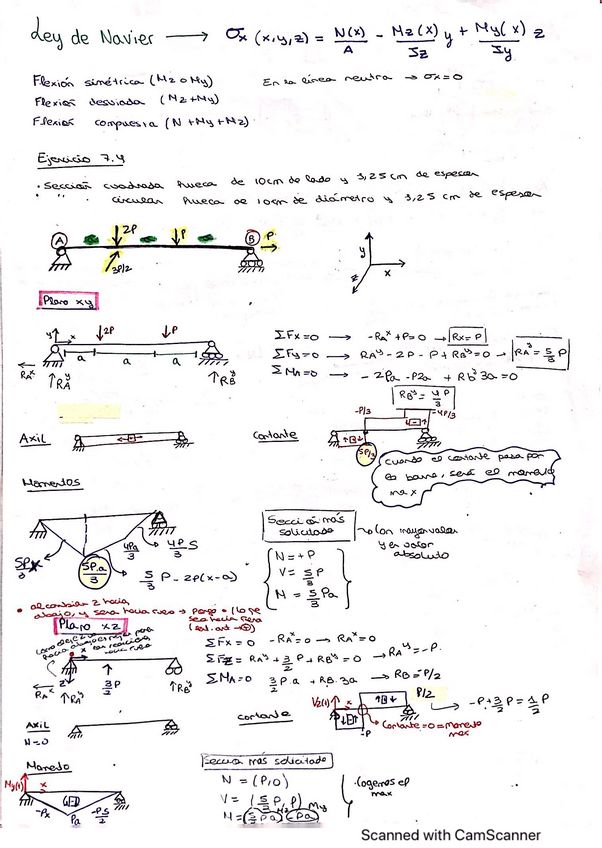 Ley de Navier → σx (x,y,z) = N(x)/A - Mz(x)/Iz y + My(x)/Iy z
Flexión simétrica (Mz o My) En la línea neutra → σx=0
Flexión desviada (Mz+My)
Flexión compuesta (N+My+Mz)
Ejercicio 7.4
· Sección cuadrada hueca de 10cm de lado y 3,25 cm de espesor
· " circular hueca de 10cm de diámetro y 3,25 cm de espesor
A 2P P B P
3P/2
y x z
Plano xy
y x 2P P
a a a
RAx RAy RBy
ΣFx=0 → -RAx+P=0 → Rx=P
ΣFy=0 → RAy-2P-P+RBy=0 → RAy=5/3 P
ΣMA=0 → -2Pa-P2a+Rb 3a=0
RBy=4P/3
Axil
Cortante
-P/3 -4P/3
5P/3
cuando el cortante pasa por
la barra, será el momento
max
Momentos
5Pa/3
4Pa/3
4P/3 S
5/3 P - 2P(x-a)
Sección más
solicitado
→ Con mayor valor
y en valor
absoluto
N=+P
V=5/3 P
M=5/3 Pa
Plano xz
RAx RAy 3/2 P RBy
ΣFx=0 -RAx=0 → RAx=0
ΣFz=RAy+3/2 P+RBy=0 → RAy=-P
ΣMA=0 3/2 P.a + RB.3a → RB=-P/2
Axil
N=0
cortante
Vz(1) x
P/2
-P
→ -P+3/2 P=1/2 P
Cortante=0=Momento
max
Momento
My(1) x
-Px Pa -PS/2
Sección más solicitado
N = (P,0)
V = (5/3 P, P)
M = (5/3 Pa) Mz (-Pa) My
·Cogemos el
max
Scanned with CamScanner